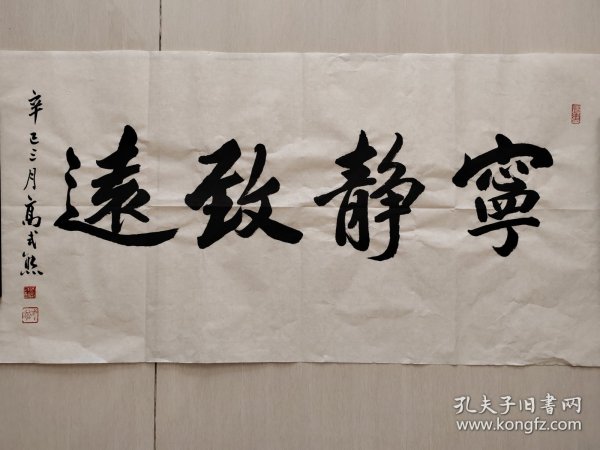 寧靜致遠
辛巳三月高式熊
孔夫子旧書网
www.kongfz.com